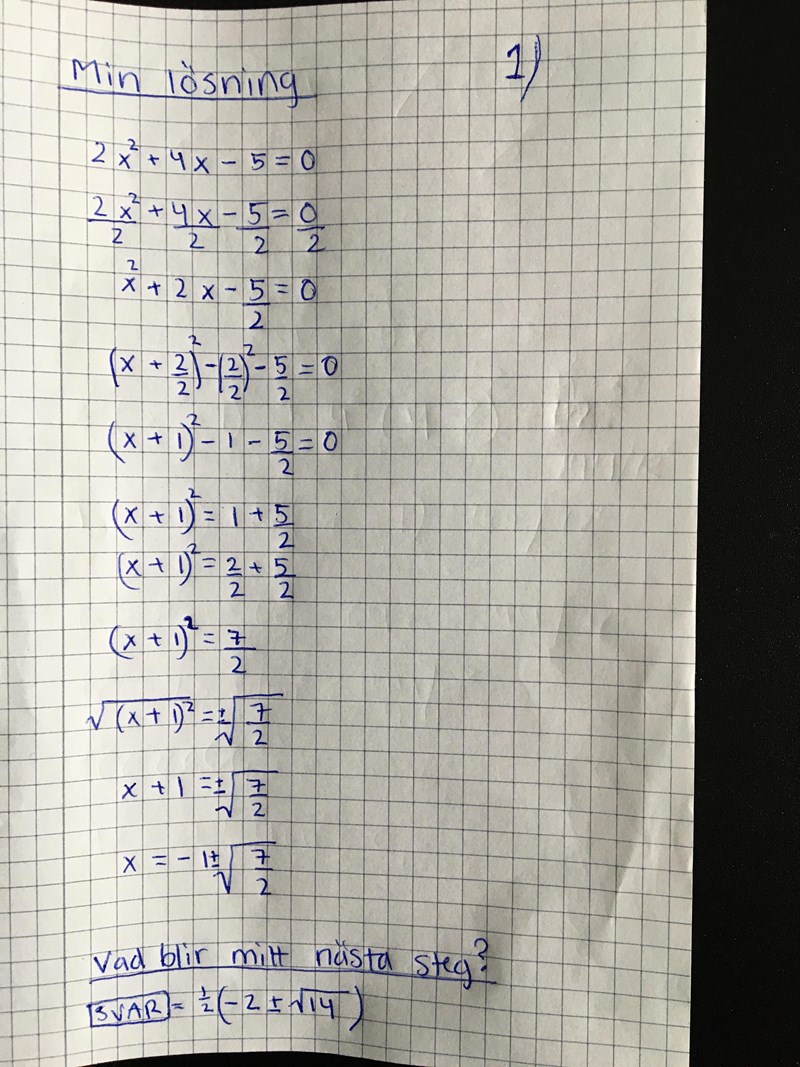 Min lösning
1)
2x² + 4x - 5 = 0
2x²/2 + 4x/2 - 5/2 = 0/2
x² + 2x - 5/2 = 0
(x + 2/2)² - (2/2)² - 5/2 = 0
(x + 1)² - 1 - 5/2 = 0
(x + 1)² = 1 + 5/2
(x + 1)² = 2/2 + 5/2
(x + 1)² = 7/2
√(x + 1)² = ±√7/2
x + 1 = ±√7/2
x = - 1 ± √7/2
Vad blir mitt nästa steg?
SVAR = 1/2 (-2 ± √14)